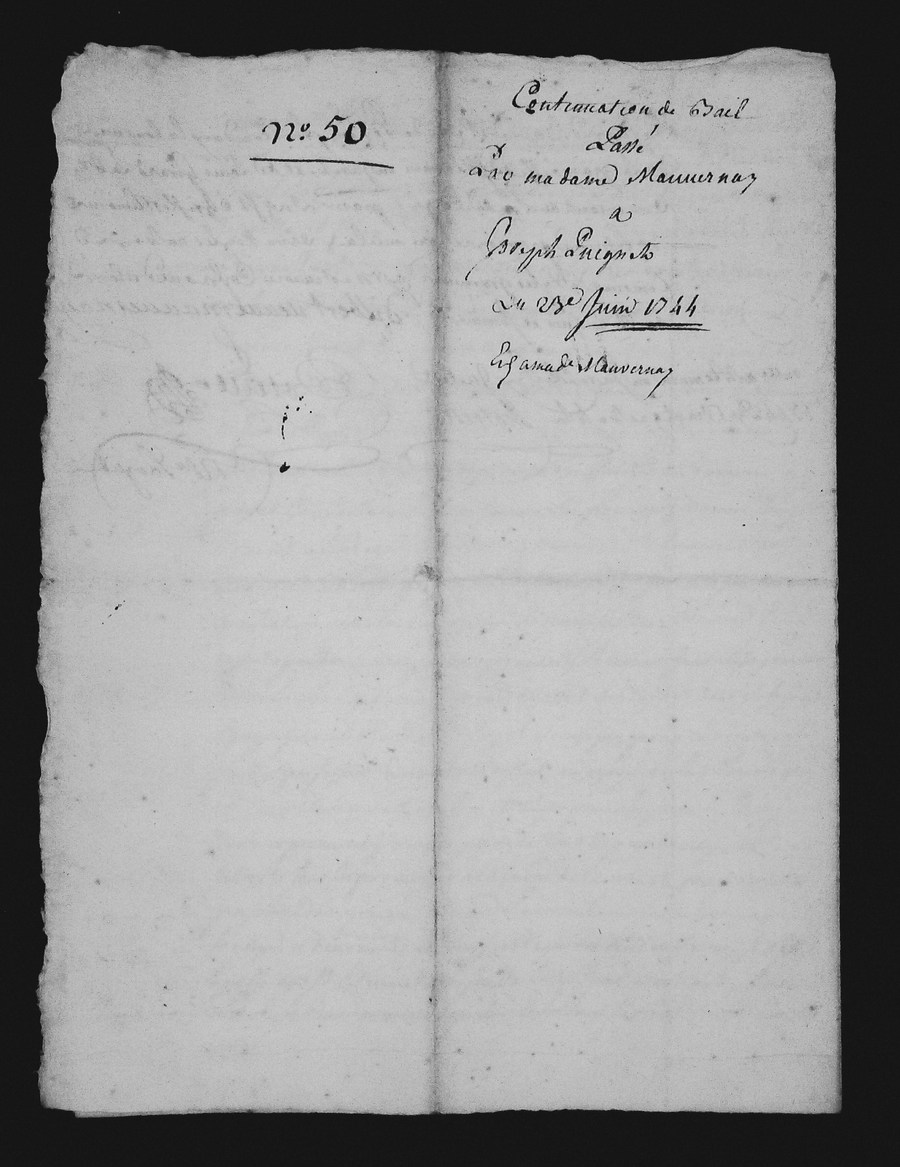 No. 50
Continuation de Bail
Passé
Par madame Mauvernay
a
Joseph Puignet
Du 23e Juin 1744
Mauvernay